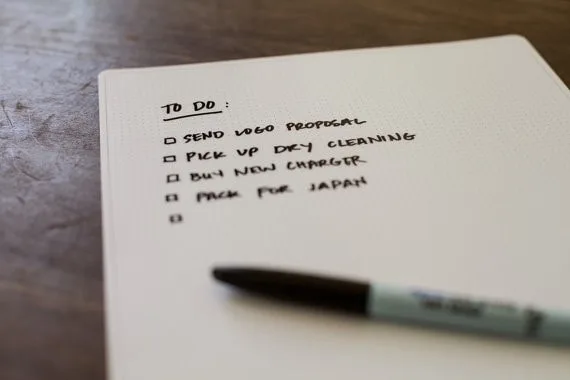 TO DO :
☐ SEND LOGO PROPOSAL
☐ PICK UP DRY CLEANING
☐ BUY NEW CHARGER
☐ PACK FOR JAPAN
☐